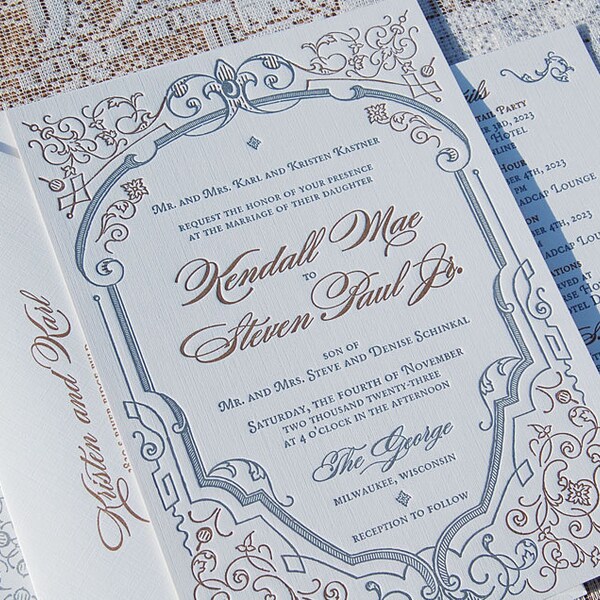 Mr. and Mrs. Karl and Kristen Kastner
request the honor of your presence
at the marriage of their daughter
Kendall Mae
to
Steven Paul Jr.
son of
Mr. and Mrs. Steve and Denise Schinkal
Saturday, the fourth of November
two thousand twenty-three
at 4 o'clock in the afternoon
The George
Milwaukee, Wisconsin
reception to follow
Kristen and Karl
ils
tail Party
3rd, 2023
Hotel
Hour
2023
PM
adcap Lounge
2023
PM
adcap Lounge
ations
Hotel